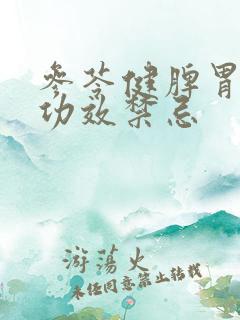 参苓健脾胃
功效禁忌
游荡火
未经同意禁止转载